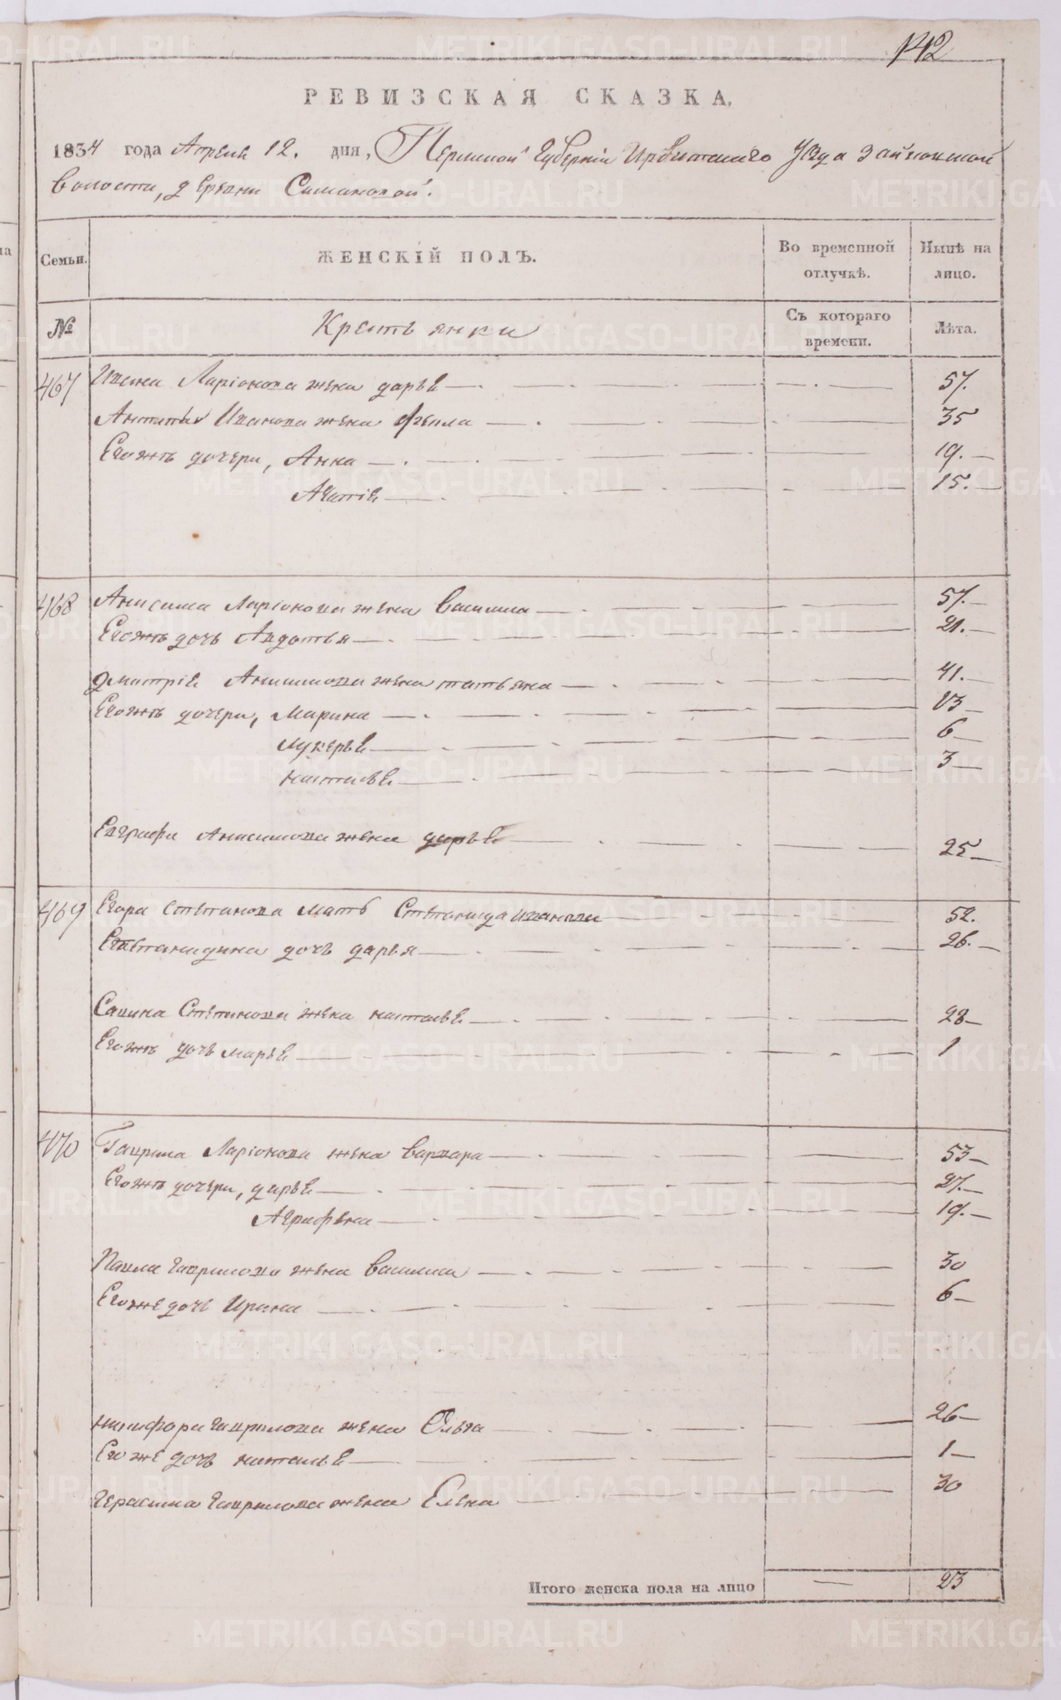 142
РЕВИЗСКАЯ СКАЗКА,
1834 года Апреля 12. дня, Пермской Губерніи Ирбитскаго Уезда Зайковской
волости, деревни Симановой.
Семьи. ЖЕНСКІЙ ПОЛЪ. Во временной отлучкѣ. Нынѣ на лицо.
№ Крестьянки Съ котораго времени. Лѣта.
467 Ивана Ларіонова жена дарья 57.
Антипы Иванова жена Фекла 35
Егожъ дочери, Анна 19.
Агафія 15.
468 Анисима Ларіонова жена Василиса 57.
Егожъ дочь Авдотья 21.
дмитрія Анисимова жена татьяна 41.
Егожъ дочери, Марина 13
Лукерья 6
наталья 3
Евграфа Анисимова жена дарья 25
469 Егора Степанова мать Степанида иванова 52.
Степанидина дочь дарья 26.
Савина Степанова жена наталья 28
Егожъ дочь марья 1
470 Гаврила Ларіонова жена варвара 53
Егожъ дочери, дарья 27.
Аграфена 19.
Павла гаврилова жена василиса 30
Егоже дочь Ирина 6
никифора гаврилова жена Ольга 26
Егоже дочь наталья 1
герасима гаврилова жена Елена 30
Итого женска пола на лицо — 23
METRIKI.GASO-URAL.RU